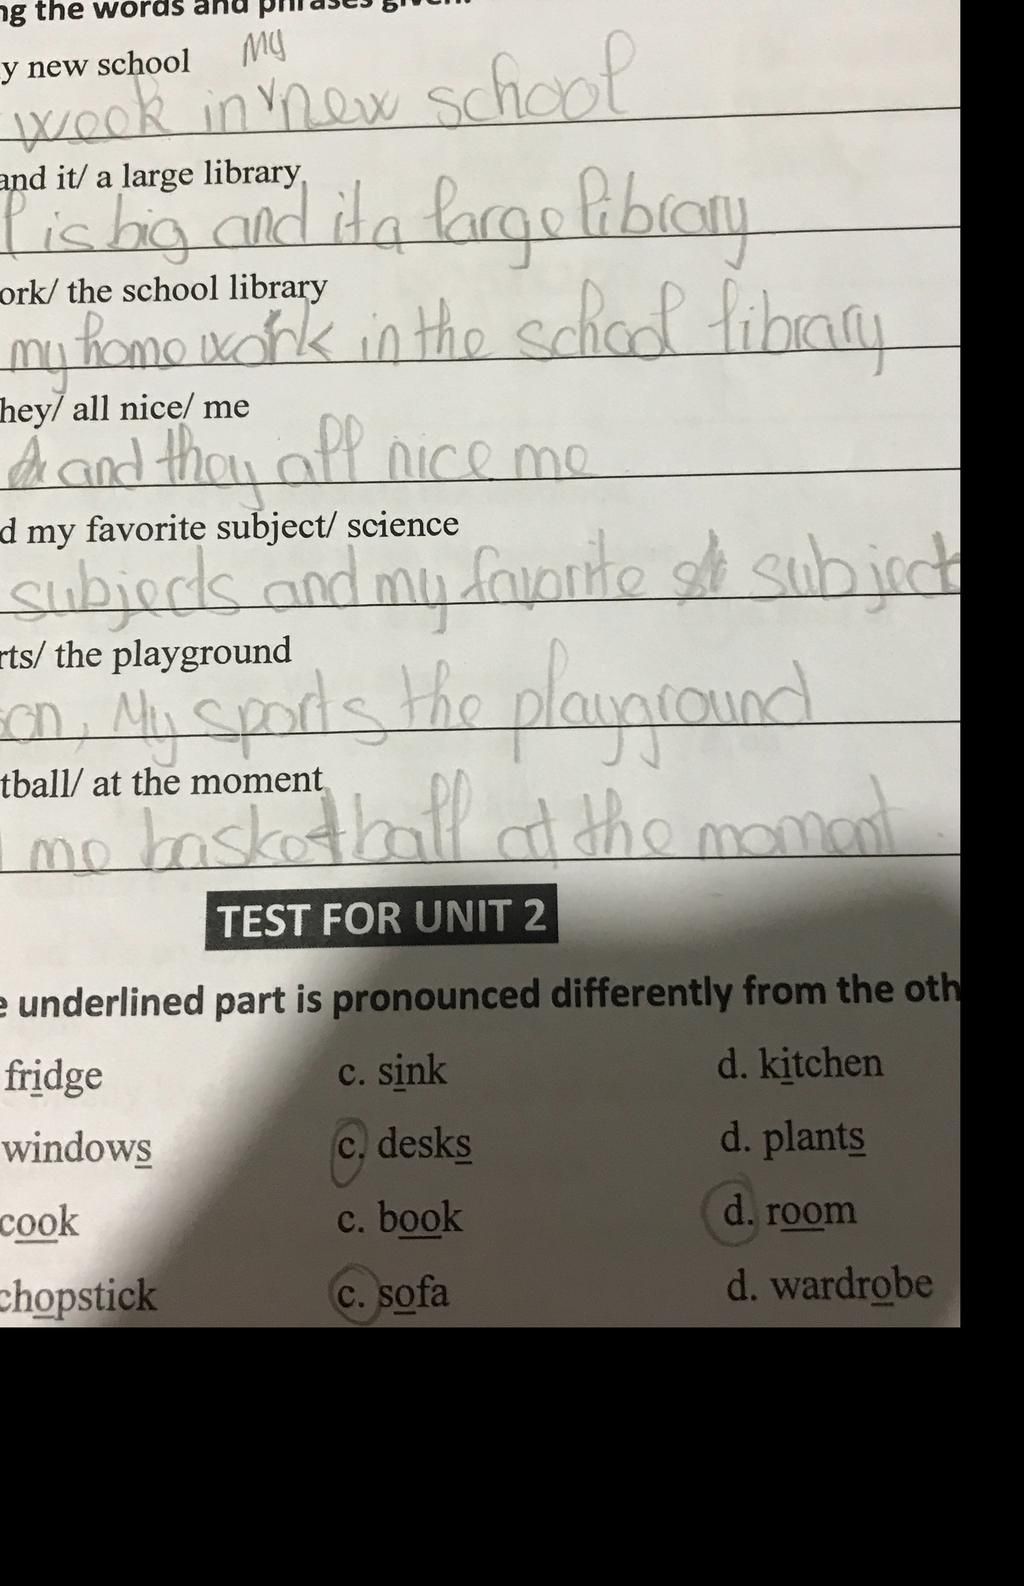 ng the words and phrases given.
y new school
My
week in new school
and it/ a large library
is big and it a large library
ork/ the school library
my homework in the school library
hey/ all nice/ me
and they all nice me
d my favorite subject/ science
subjects and my favorite subject
rts/ the playground
son, My sports the playground
tball/ at the moment
me basketball at the moment.
TEST FOR UNIT 2
e underlined part is pronounced differently from the oth
fridge c. sink d. kitchen
windows c. desks d. plants
cook c. book d. room
chopstick c. sofa d. wardrobe